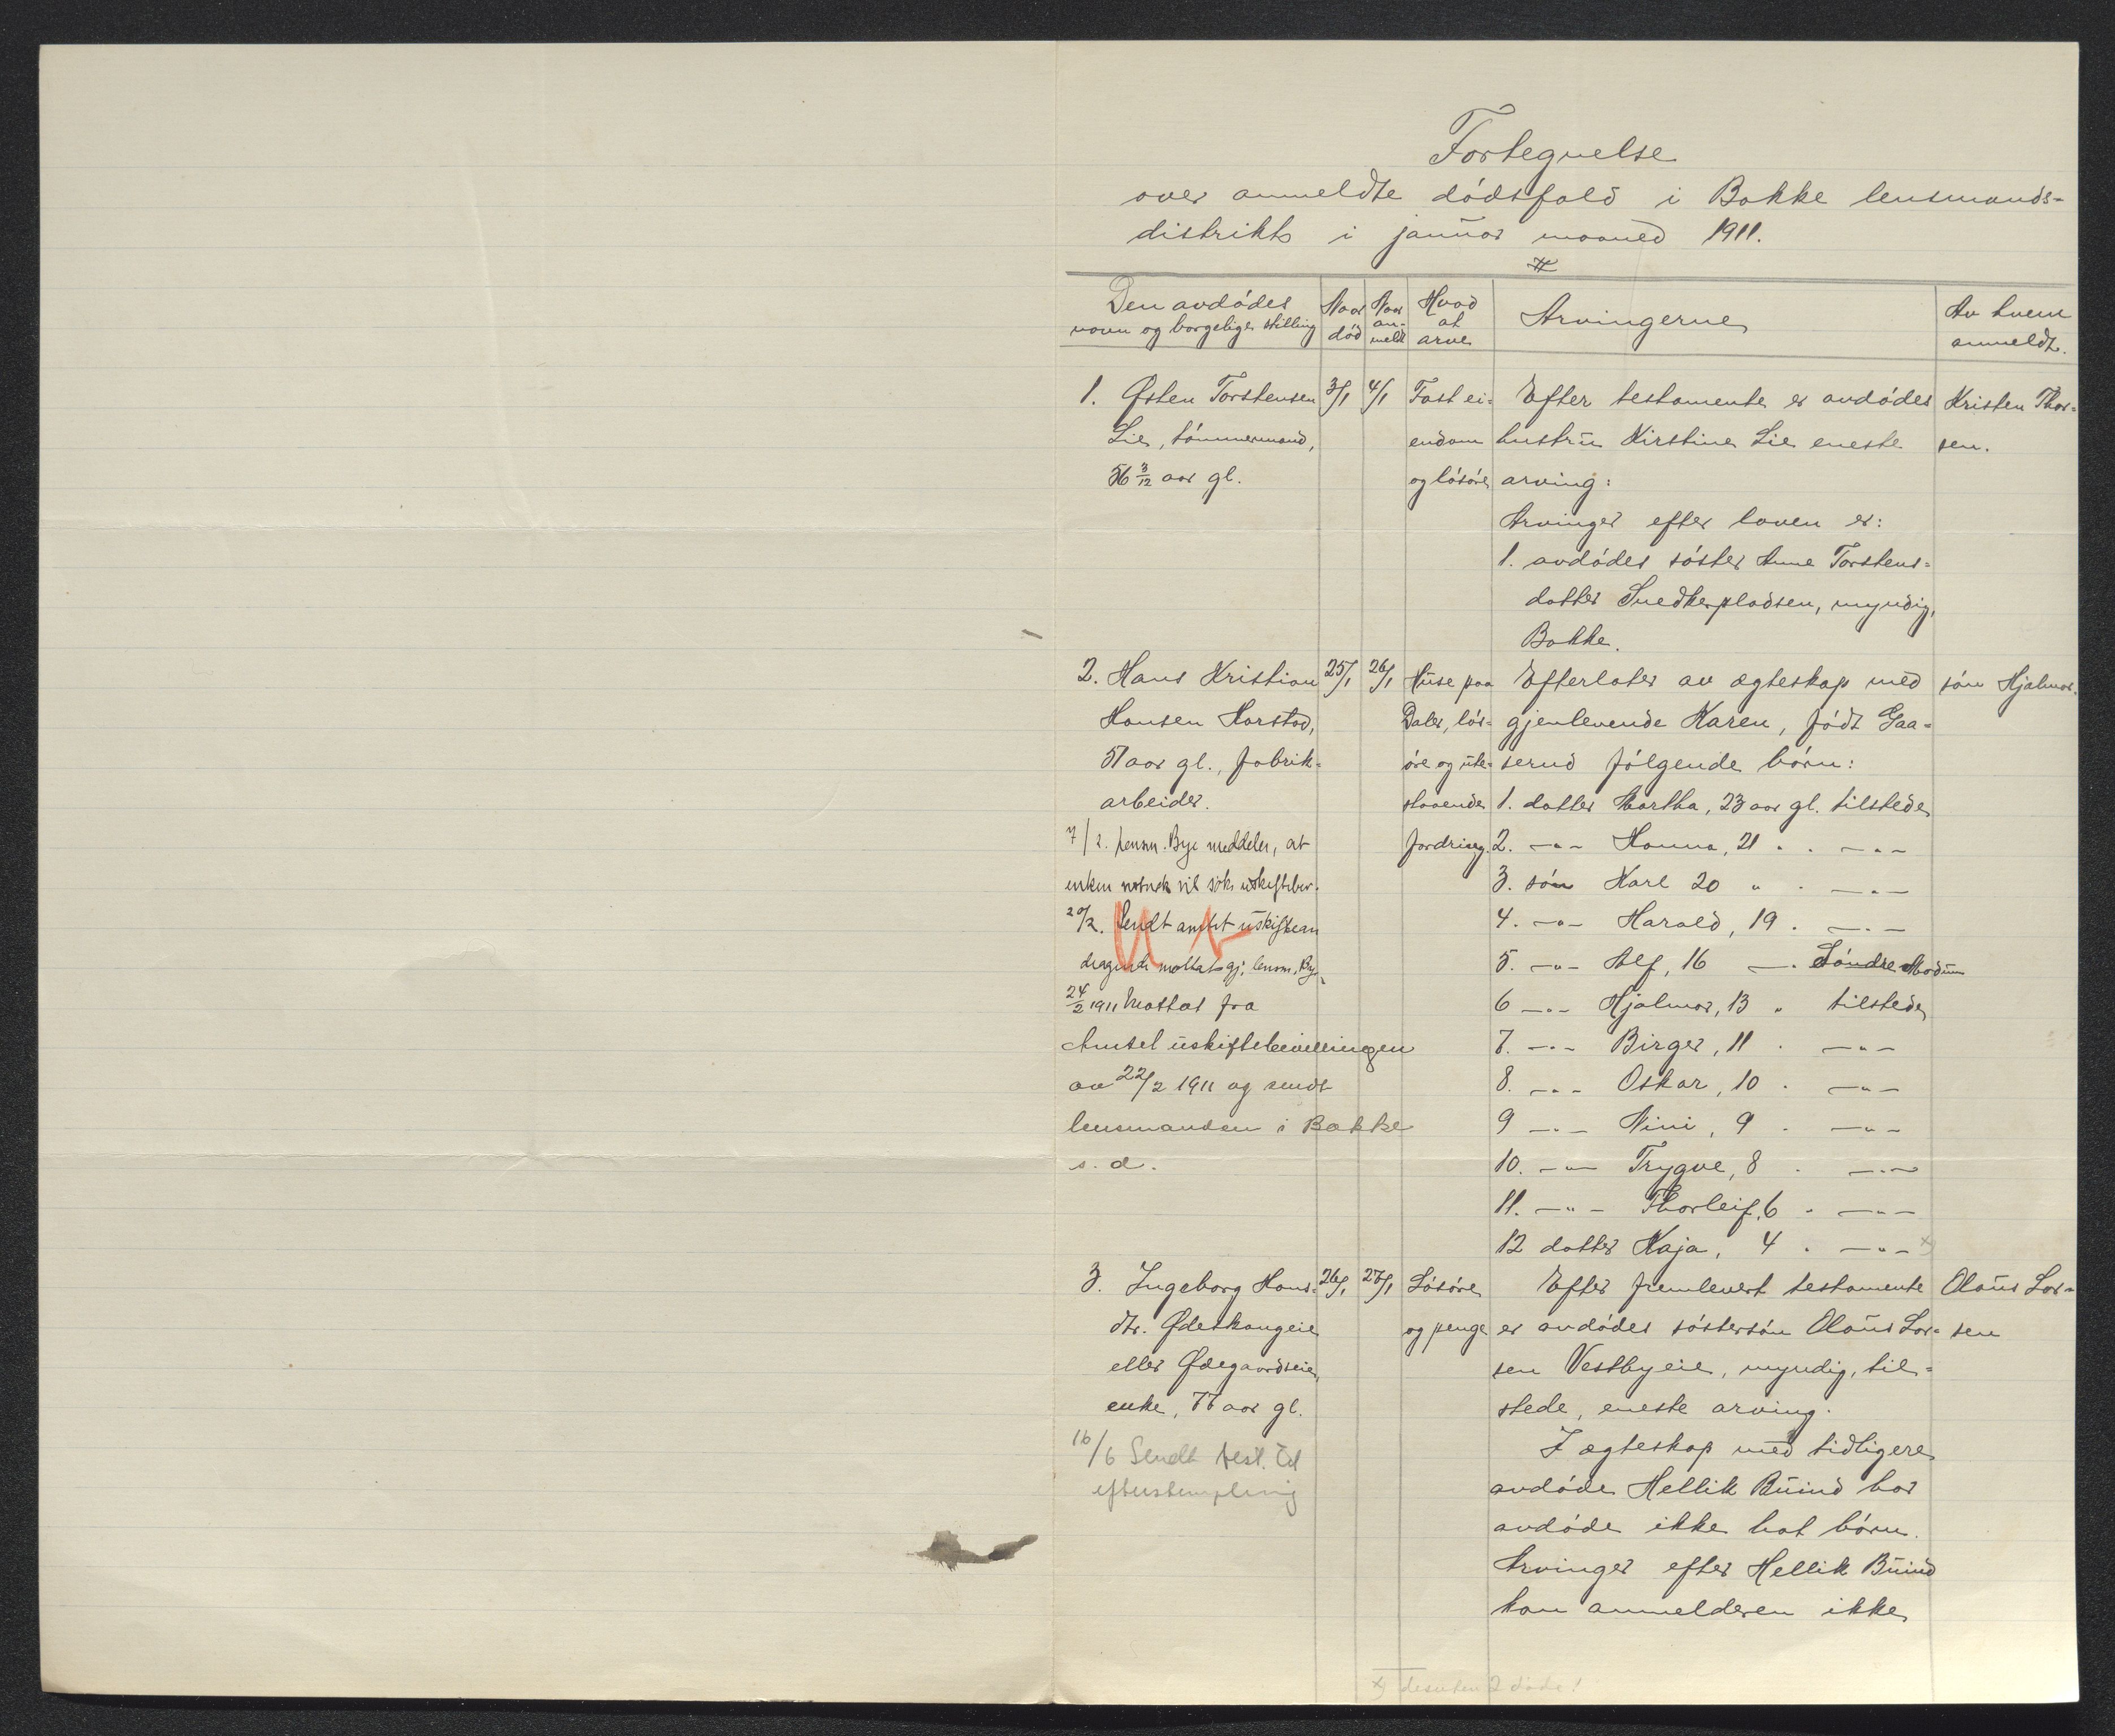 Fortegnelse
over anmeldte dödsfald i Bakke lensmands-
distrikt i januar maaned 1911.
Den avdödes navn og borgelige stilling
Naar död
Naar an-meldt
Hvad at arve
Arvingerne
Av hvem anmeldt.
1. Østen Torstensen 3/1 4/1 Fast ei- Efter testamente er avdödes Kristen Thor-
Lie, tömmermand, endom hustru Kirstine Lie eneste sen.
56 3/12 aar gl. og lösöre arving:
Arvinger efter loven er:
1. avdödes söster Anne Torstens-
datter Snedkerpladsen, myndig,
Bakke.
2. Hans Kristian 25/1 26/1 Huse paa Efterlater av ægteskap med sön Hjalmar.
Hansen Harstad, Daler, lös- gjenlevende Karen, födt Gaa-
51 aar gl., fabrik- öre og ute- serud fölgende börn:
arbeider. staaende 1. datter Martha, 23 aar gl. tilstede
7/2. lensm. Bye meddeler, at fordring. 2. -"- Hanna, 21 " . -"-
enken vil söke uskiftebev. 3. sön Karl 20 " . -"-
20/2. Sendt amtet uskiftean 4. -"- Harald, 19 . -"-
dragende mottat gj. lensm. Bye 5. -"- Alf, 16 -"- Söndre Modum
24/2 1911 Mottat fra 6 -"- Hjalmar, 13 " tilstede
Amtet uskiftebevillingen 7. -"- Birger, 11 . -"-
av 22/2 1911 og sendt 8. -"- Oskar, 10 . -"-
lensmanden i Bakke 9 -"- Nini, 9 . -"-
s. d. 10. -"- Trygve, 8 . -"-
11. -"- Thorleif, 6 . -"-
12 datter Kaja, 4 . -"- x)
3. Ingeborg Hans- 26/1 27/1 Lösöre Efter fremlevert testamente Olaus Lar-
dtr. Ødeskaugeie og penge er avdödes söstersön Olaus Lar- sen
eller Ødegaardseie, sen Vestbyeie, myndig, til-
enke, 77 aar gl. stede, eneste arving.
16/6 Sendt test. til I ægteskap med tidligere
efterstempling avdöde Hellik Buind har
avdöde ikke hat börn.
Arvinger efter Hellik Buind
kan anmelderen ikke
x) desuten 2 döde!